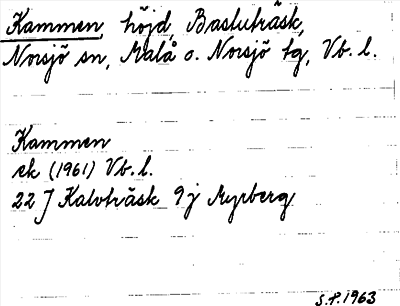 Kammen, höjd, Bastuträsk,
Norsjö sn, Malå o. Norsjö tg, Vb. l.
Kammen
ek (1961) Vb. l.
22 J Kalvträsk 9 j Myrberg
S.P. 1963